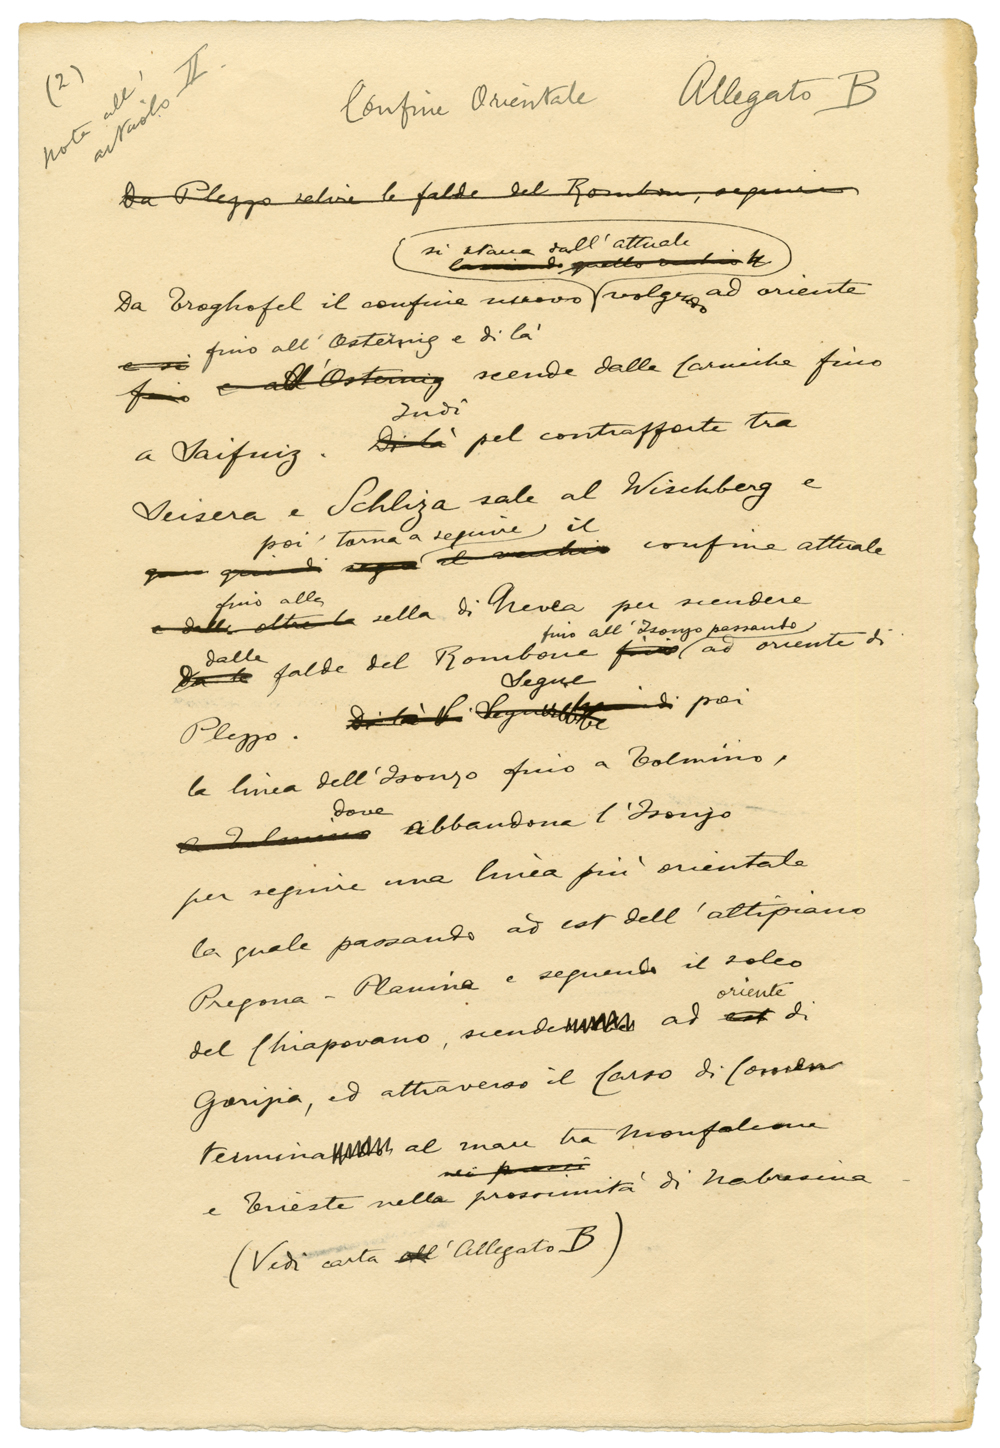 (2)
nota all'
articolo II.
Confine Orientale Allegato B
Da Plezzo salire le falde del Rombon, seguire
si stacca dall'attuale
lasciando quello vecchio
Da Troghofel il confine nuovo volgendo ad oriente
e si fino all'Osternig e di là
fino e all'Osternig scende dalle Carniche fino
Indi
a Saifniz. Di là pel contrafforte tra
Seisera e Schliza sale al Wischberg e
poi torna a seguire il
quindi segue il vecchio confine attuale
fino alla
e dalle oltre la sella di Nevea per scendere
dalle fino all'Isonzo passando
Da le falde del Rombone fino ad oriente di
Segue
Plezzo. Di là poi
la linea dell'Isonzo fino a Tolmino,
dove
a Tolmino abbandona l'Isonzo
per seguire una linea più orientale
la quale passando ad est dell'altipiano
Pregona - Planina e seguendo il solco
oriente
del Chiapovano, scende ad est di
Gorizia, ed attraverso il Carso di Comen
termina al mare tra Monfalcone
nei pressi
e Trieste nella prossimità di Nabresina
(Vedi carta all' Allegato B)